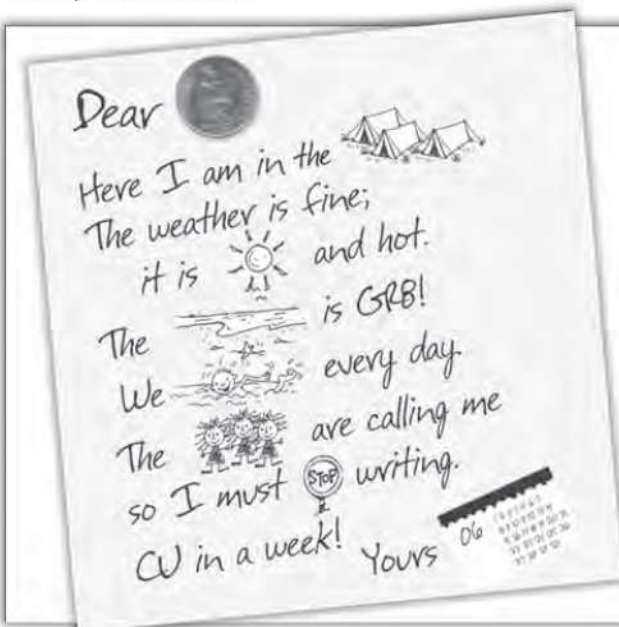 Dear
Here I am in the
The weather is fine;
it is and hot.
The is GR8!
We every day.
The are calling me
so I must STOP writing.
CU in a week!
Yours 06